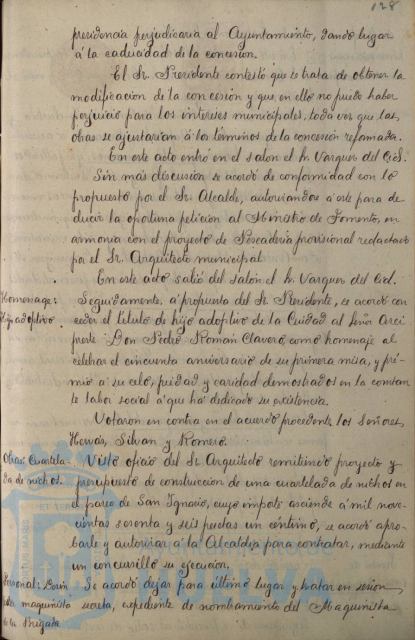 128
presidencia perjudicaria al Ayuntamiento, dando lugar
á la caducidad de la concesion.
El Sr. Presidente contestó que se trata de obtener la
modificacion de la concesion y que en ello no puede haber
perjuicio para los intereses municipales, toda vez que las
obras se ajustarian á los términos de la concesion reformada.
En este acto entró en el salon el Sr. Vazquez del Cid.
Sin mas discusion se acordó de conformidad con lo
propuesto por el Sr. Alcalde, autorizandose á este para de-
ducir la oportuna peticion al Ministro de Fomento, en
armonia con el proyecto de Pescaderia provisional redactado
por el Sr. Arquitecto municipal
En este acto salió del salon el Sr. Vazquez del Cid.
Homenage:
Hijo adoptivo.
Seguidamente, á propuesta del Sr. Presidente, se acordó con-
ceder el titulo de hijo adoptivo de la Ciudad al Señor Arci
preste Don Pedro Román Clavero, como homenaje al
celebrar el cincuenta aniversario de su primera misa, y pre-
mio á su celo, piedad y caridad demostrados en la constan
te labor social á que ha dedicado su existencia.
Votaron en contra en el acuerdo precedente los Señores,
Hervás, Silvan y Romero.
Obras: Cuartela-
da de nichos.
Visto oficio del Sr. Arquitecto remitiendo proyecto y
presupuesto de construccion de una cuartelada de nichos en
el paseo de San Ignacio, cuyo importe asciende á mil nove-
cientas sesenta y seis pesetas un céntimo, se acordó apro-
barle y autorizar á la Alcaldia para contratar, mediante
un concursillo su ejecucion.
Personal:
maquinista
de la Brigada
Se acordó dejar para último lugar y tratar en sesion
secreta, expediente de nombramiento del Maquinista
HUELVA